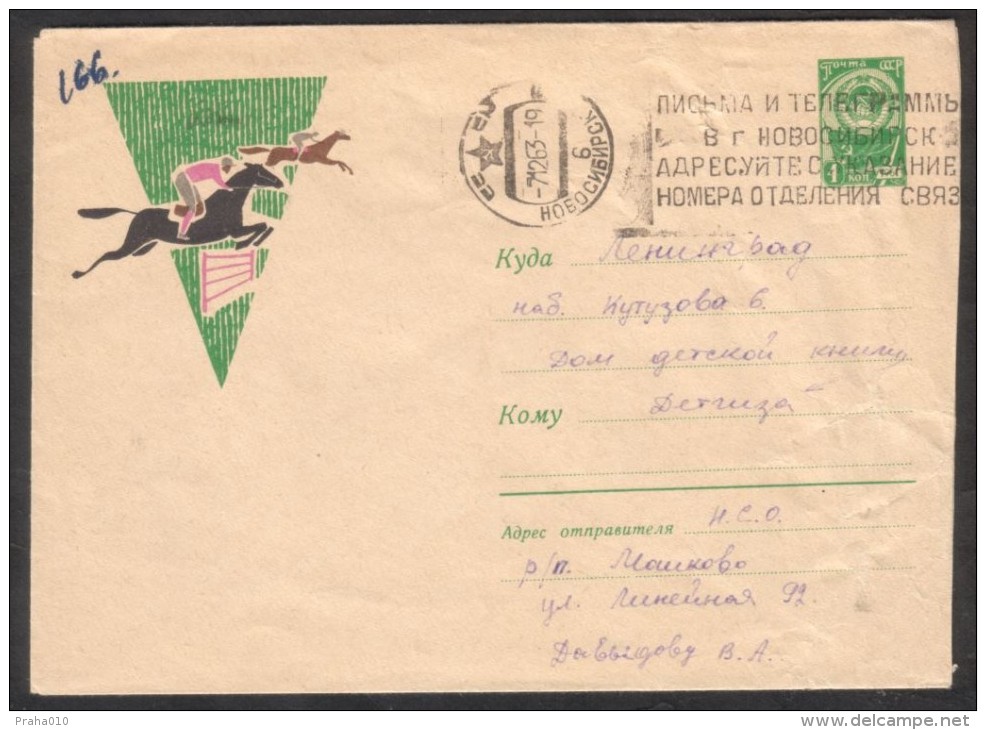 166.
Почта СССР
4 коп
-71263-19
НОВОСИБИРСК 6
ПИСЬМА И ТЕЛЕГРАММЫ
В г НОВОСИБИРСК
АДРЕСУЙТЕ С УКАЗАНИЕ
НОМЕРА ОТДЕЛЕНИЯ СВЯЗ
Куда Ленинград
наб. Кутузова 6.
Дом детской книги
Кому Детгиза
Адрес отправителя Н.С.О.
р/п. Машково
ул. Линейная 92.
Давыдову В.А.
Praha010
delcampe.net